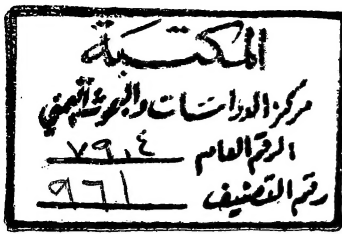 المكتبة
مركز الدراسات والبحوث اليمني
الرقم العام ٧٩٠٤
رقم التصنيف ٩٦١